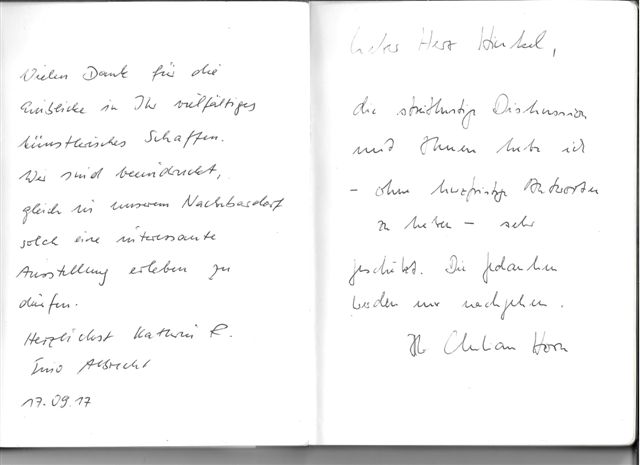 Vielen Dank für die
Einblicke in Ihr vielfältiges
künstlerisches Schaffen.
Wir sind beeindruckt,
gleich in unserem Nachbardorf
solch eine interessante
Ausstellung erleben zu
dürfen.
Herzlichst Kathrin R.
Ino Albrecht
17.09.17
Lieber Herr Hinkel,
die streitlustige Diskussion
mit Ihnen habe ich
- ohne kurzfristige Antworten
zu haben - sehr
geschätzt. Die Gedanken
werden mir nachgehen.
Ihr Christian Horn